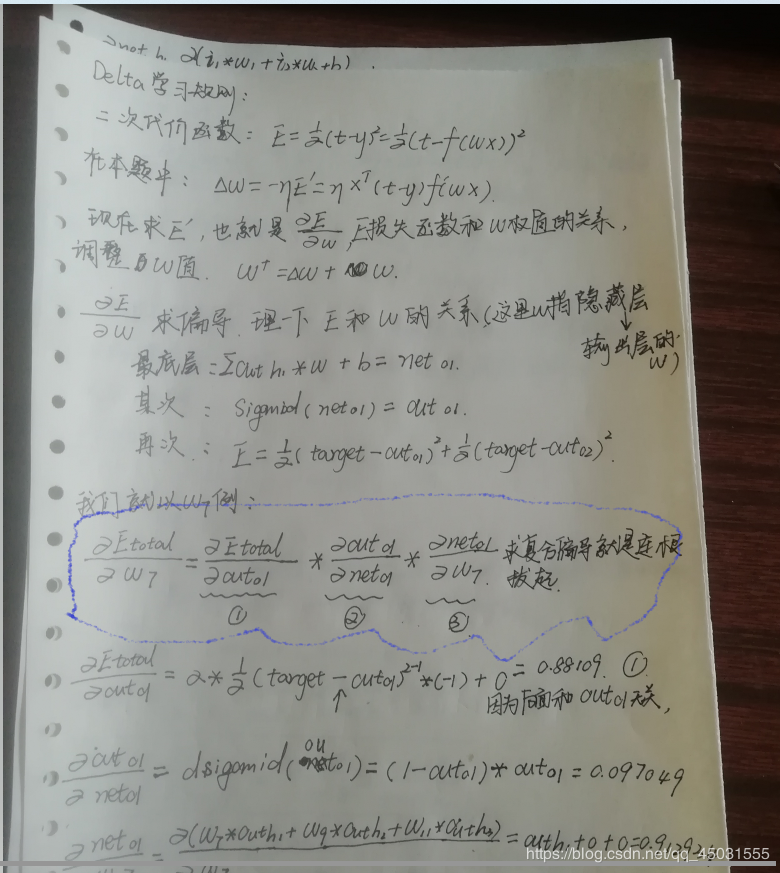 ∂net h₁ ∂(i₁*w₁+i₂*w₂+b).
Delta学习规则:
二次代价函数: E=½(t-y)²=½(t-f(wx))²
在本题中: Δw=-ηE'=ηXᵀ(t-y)f'(wx).
现在求E', 也就是 ∂E/∂w, E损失函数和w权值的关系,
调整 w值. W⁺=Δw+w.
∂E/∂w 求偏导. 理一下 E和w的关系(这里w指隐藏层
↓
输出层的w)
最底层:Σout h₁*w+b=net o1.
其次: Sigmoid(net o1)=out o1.
再次: E=½(target-out o1)²+½(target-out o2)².
我们就以W₇例:
∂Etotal/∂w₇ = ∂Etotal/∂out o1 * ∂out o1/∂net o1 * ∂net o1/∂w₇. 求复合偏导就是连根
拔起.
① ② ③
∂Etotal/∂out o1 = 2*½(target-out o1)²⁻¹*(-1)+0 = 0.88109. ①
↑
因为后面和out o1无关,
∂out o1/∂net o1 = dsigomid(out o1)=(1-out o1)*out o1=0.097049
∂net o1/∂w₇ = ∂(w₇*out h₁+w₉*out h₂+w₁₁*out h₃)/∂w₇ = out h₁+0+0=0.9129
https://blog.csdn.net/qq_45031555